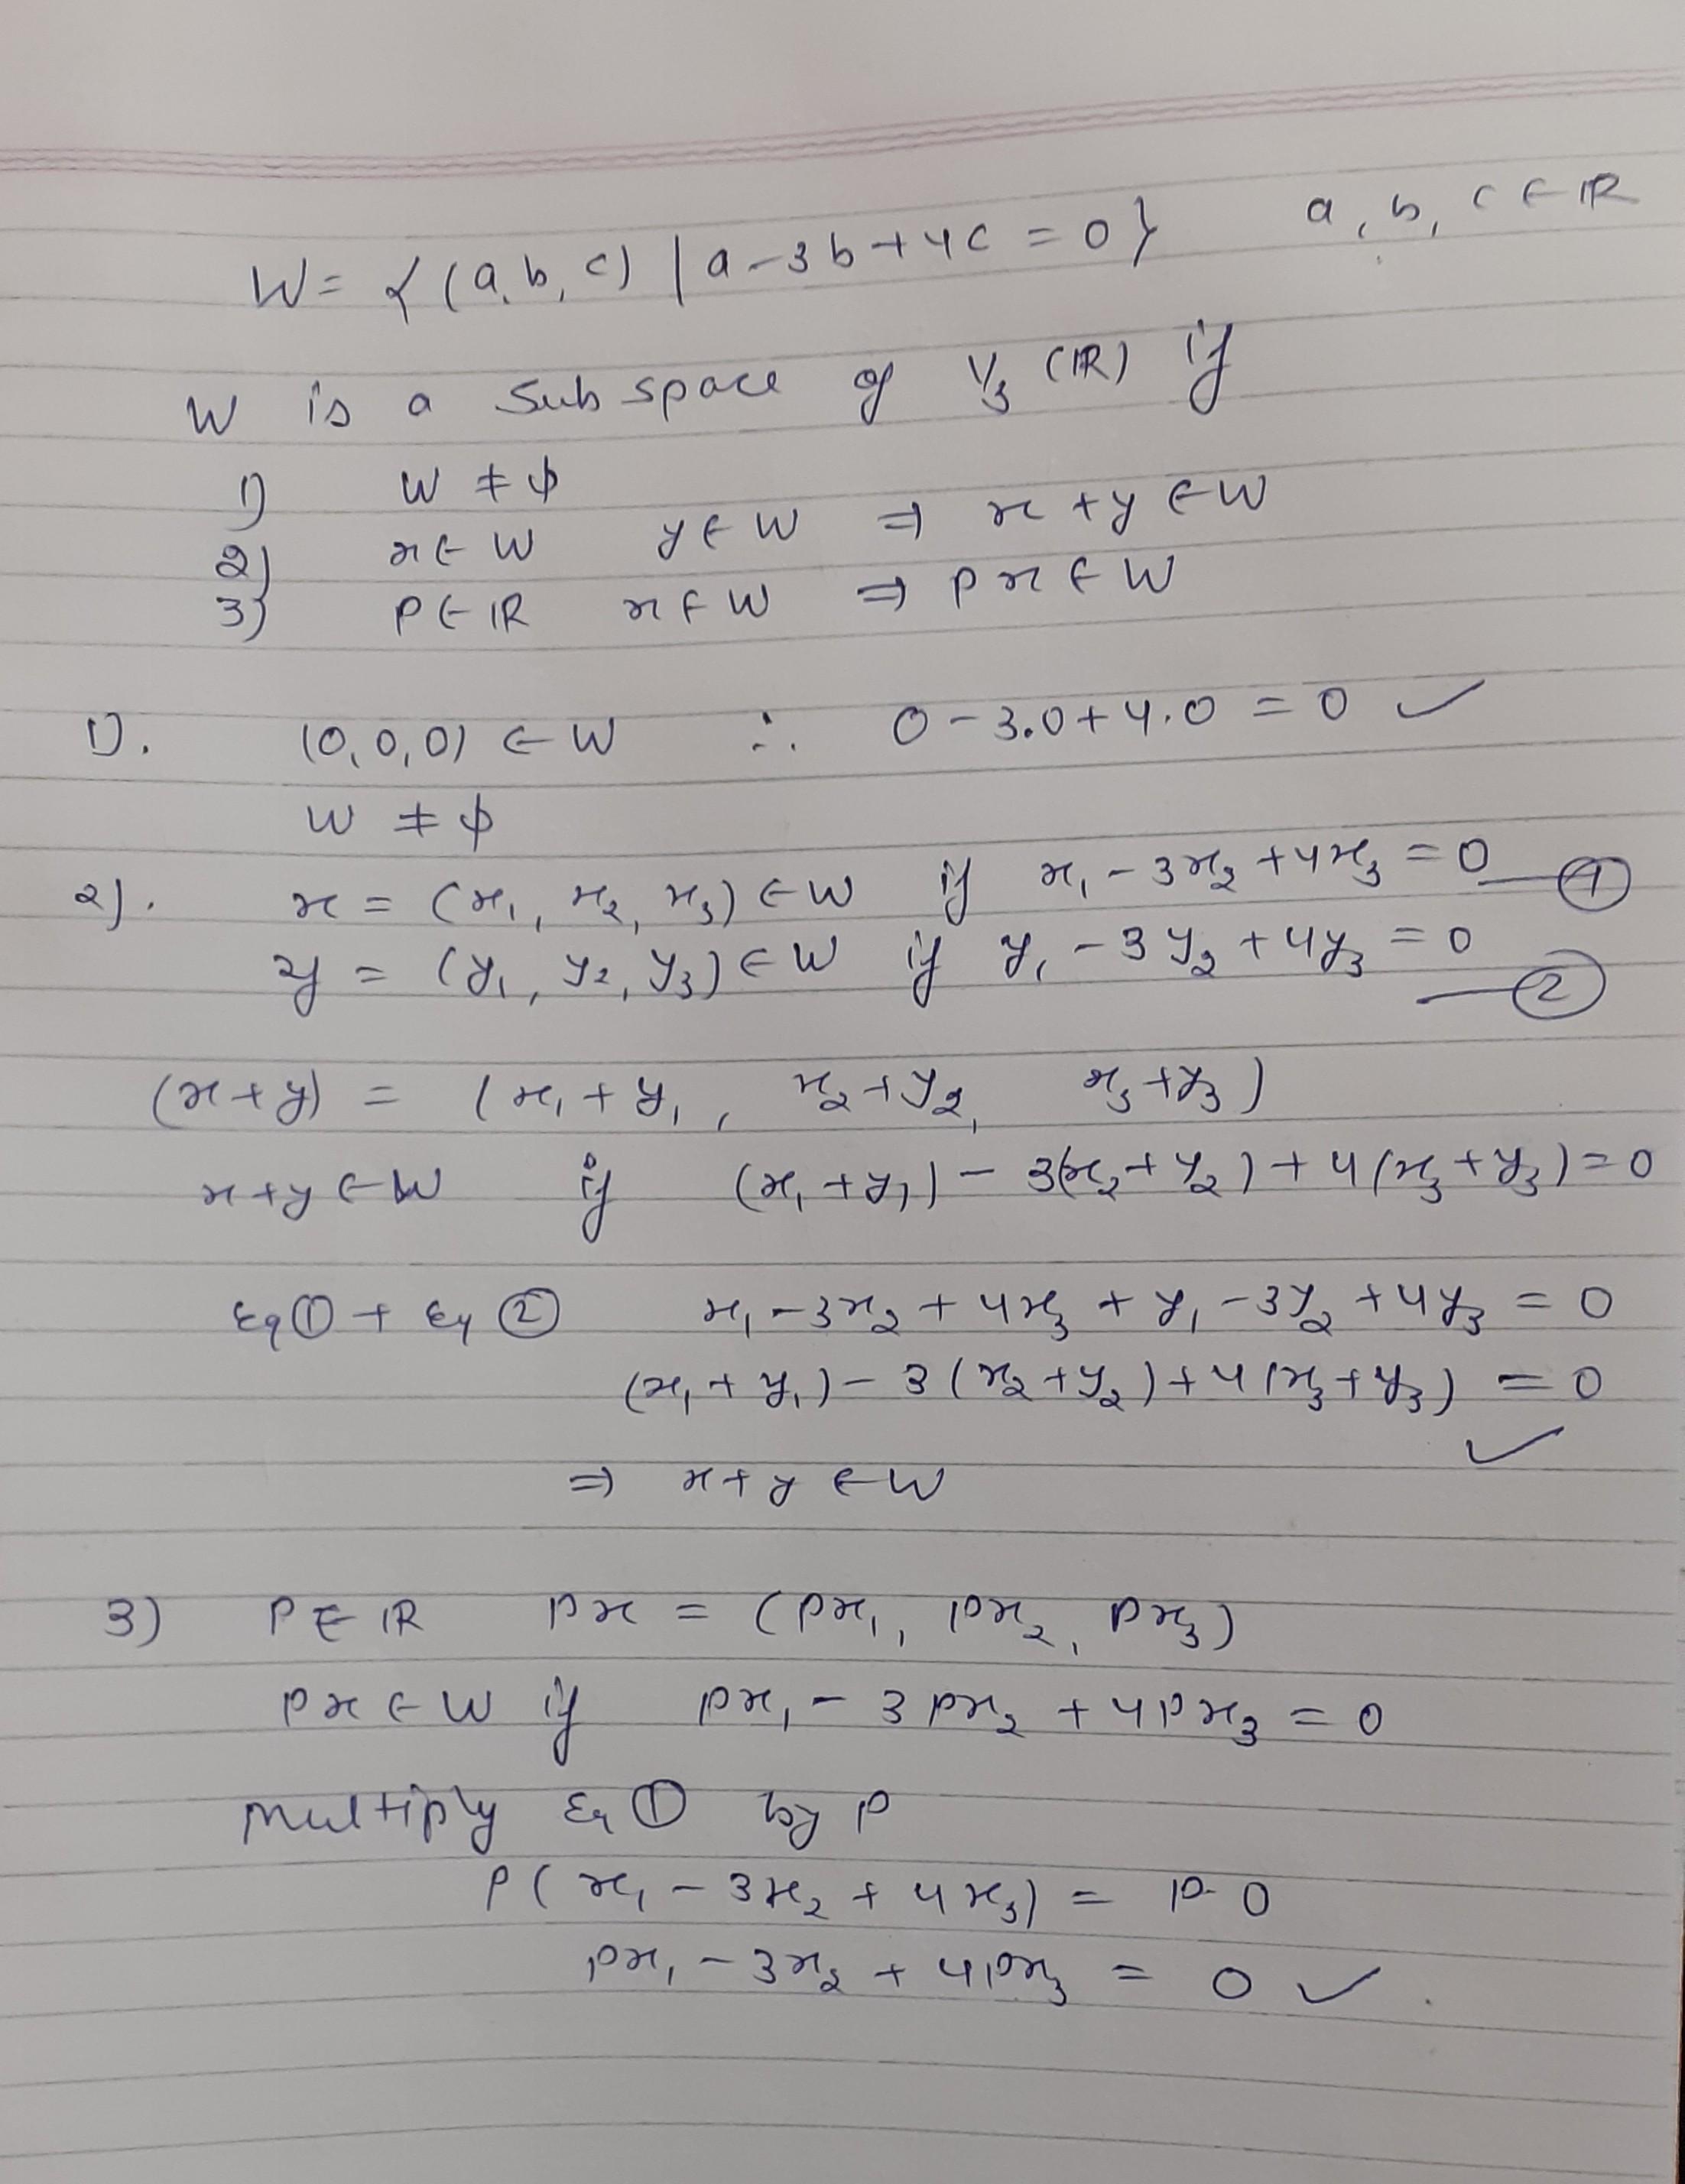 W = {(a, b, c) | a - 3b + 4c = 0} a, b, c ∈ IR
W is a Subspace of V₃ (IR) if
1) W ≠ ϕ
2) x ∈ W y ∈ W ⇒ x + y ∈ W
3) P ∈ IR x ∈ W ⇒ px ∈ W
1). (0, 0, 0) ∈ W ∴ 0 - 3.0 + 4.0 = 0 ✓
W ≠ ϕ
2). x = (x₁, x₂, x₃) ∈ W if x₁ - 3x₂ + 4x₃ = 0 — ①
y = (y₁, y₂, y₃) ∈ W if y₁ - 3y₂ + 4y₃ = 0
— ②
(x + y) = (x₁ + y₁, x₂ + y₂, x₃ + y₃)
x + y ∈ W if (x₁ + y₁) - 3(x₂ + y₂) + 4(x₃ + y₃) = 0
Eq ① + Eq ② x₁ - 3x₂ + 4x₃ + y₁ - 3y₂ + 4y₃ = 0
(x₁ + y₁) - 3(x₂ + y₂) + 4(x₃ + y₃) = 0
✓
⇒ x + y ∈ W
3) P ∈ IR px = (px₁, px₂, px₃)
px ∈ W if px₁ - 3px₂ + 4px₃ = 0
Multiply Eq ① by P
P(x₁ - 3x₂ + 4x₃) = p·0
px₁ - 3x₂ + 4px₃ = 0 ✓.